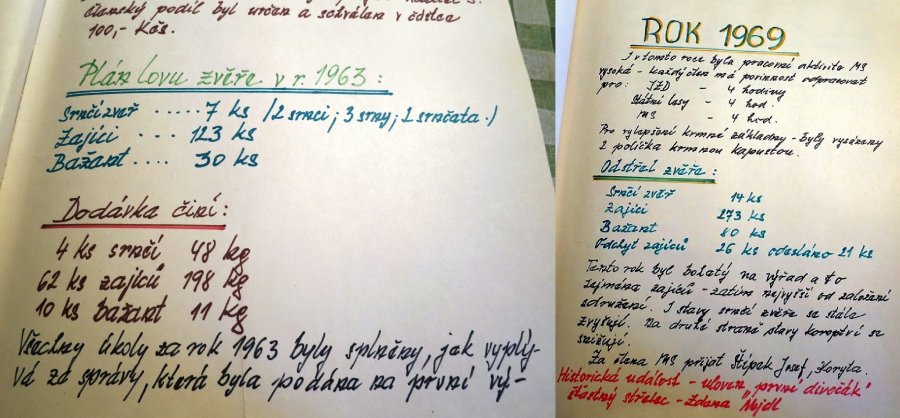 členský podíl byl určen a schválen v částce
100,- Kčs.
Plán lovu zvěře v r. 1963 :
Srnčí zveř ..... 7 ks (2 srnci ; 3 srny ; 2 srnčata.)
Zajíci ..... 123 ks
Bažant .... 30 ks
Dodávka činí :
4 ks srnčí 48 kg
62 ks zajíců 198 kg
10 ks bažant 11 kg
Všechny úkoly za rok 1963 byly splněny, jak vyplý-
vá ze správy, která byla podána na první vý-
ROK 1969
I v tomto roce byla pracovní aktivita MS
vysoká - každý člen má povinnost odpracovat
pro: JZD - 4 hodiny
Státní lesy - 4 hod.
MS - 4 hod.
Pro vylepšení krmné základny - byly vysázeny
2 políčka krmnou kapustou.
Odstřel zvěře :
Srnčí zvěř 14 ks
Zajíci 273 ks
Bažant 80 ks
Odchyt zajíců 26 ks odesláno 21 ks
Tento rok byl bohatý na výřad a to
zejména zajíců - zatím nejvyšší od založení
sdružení. I stavy srnčí zvěře se stále
zvyšují. Na druhé straně stavy koroptví se
snižují.
Za člena MS přijat Štípek Josef, Koryta.
Historická událost - uloven "první divočák"
šťastný střelec - Zdena Nejdl